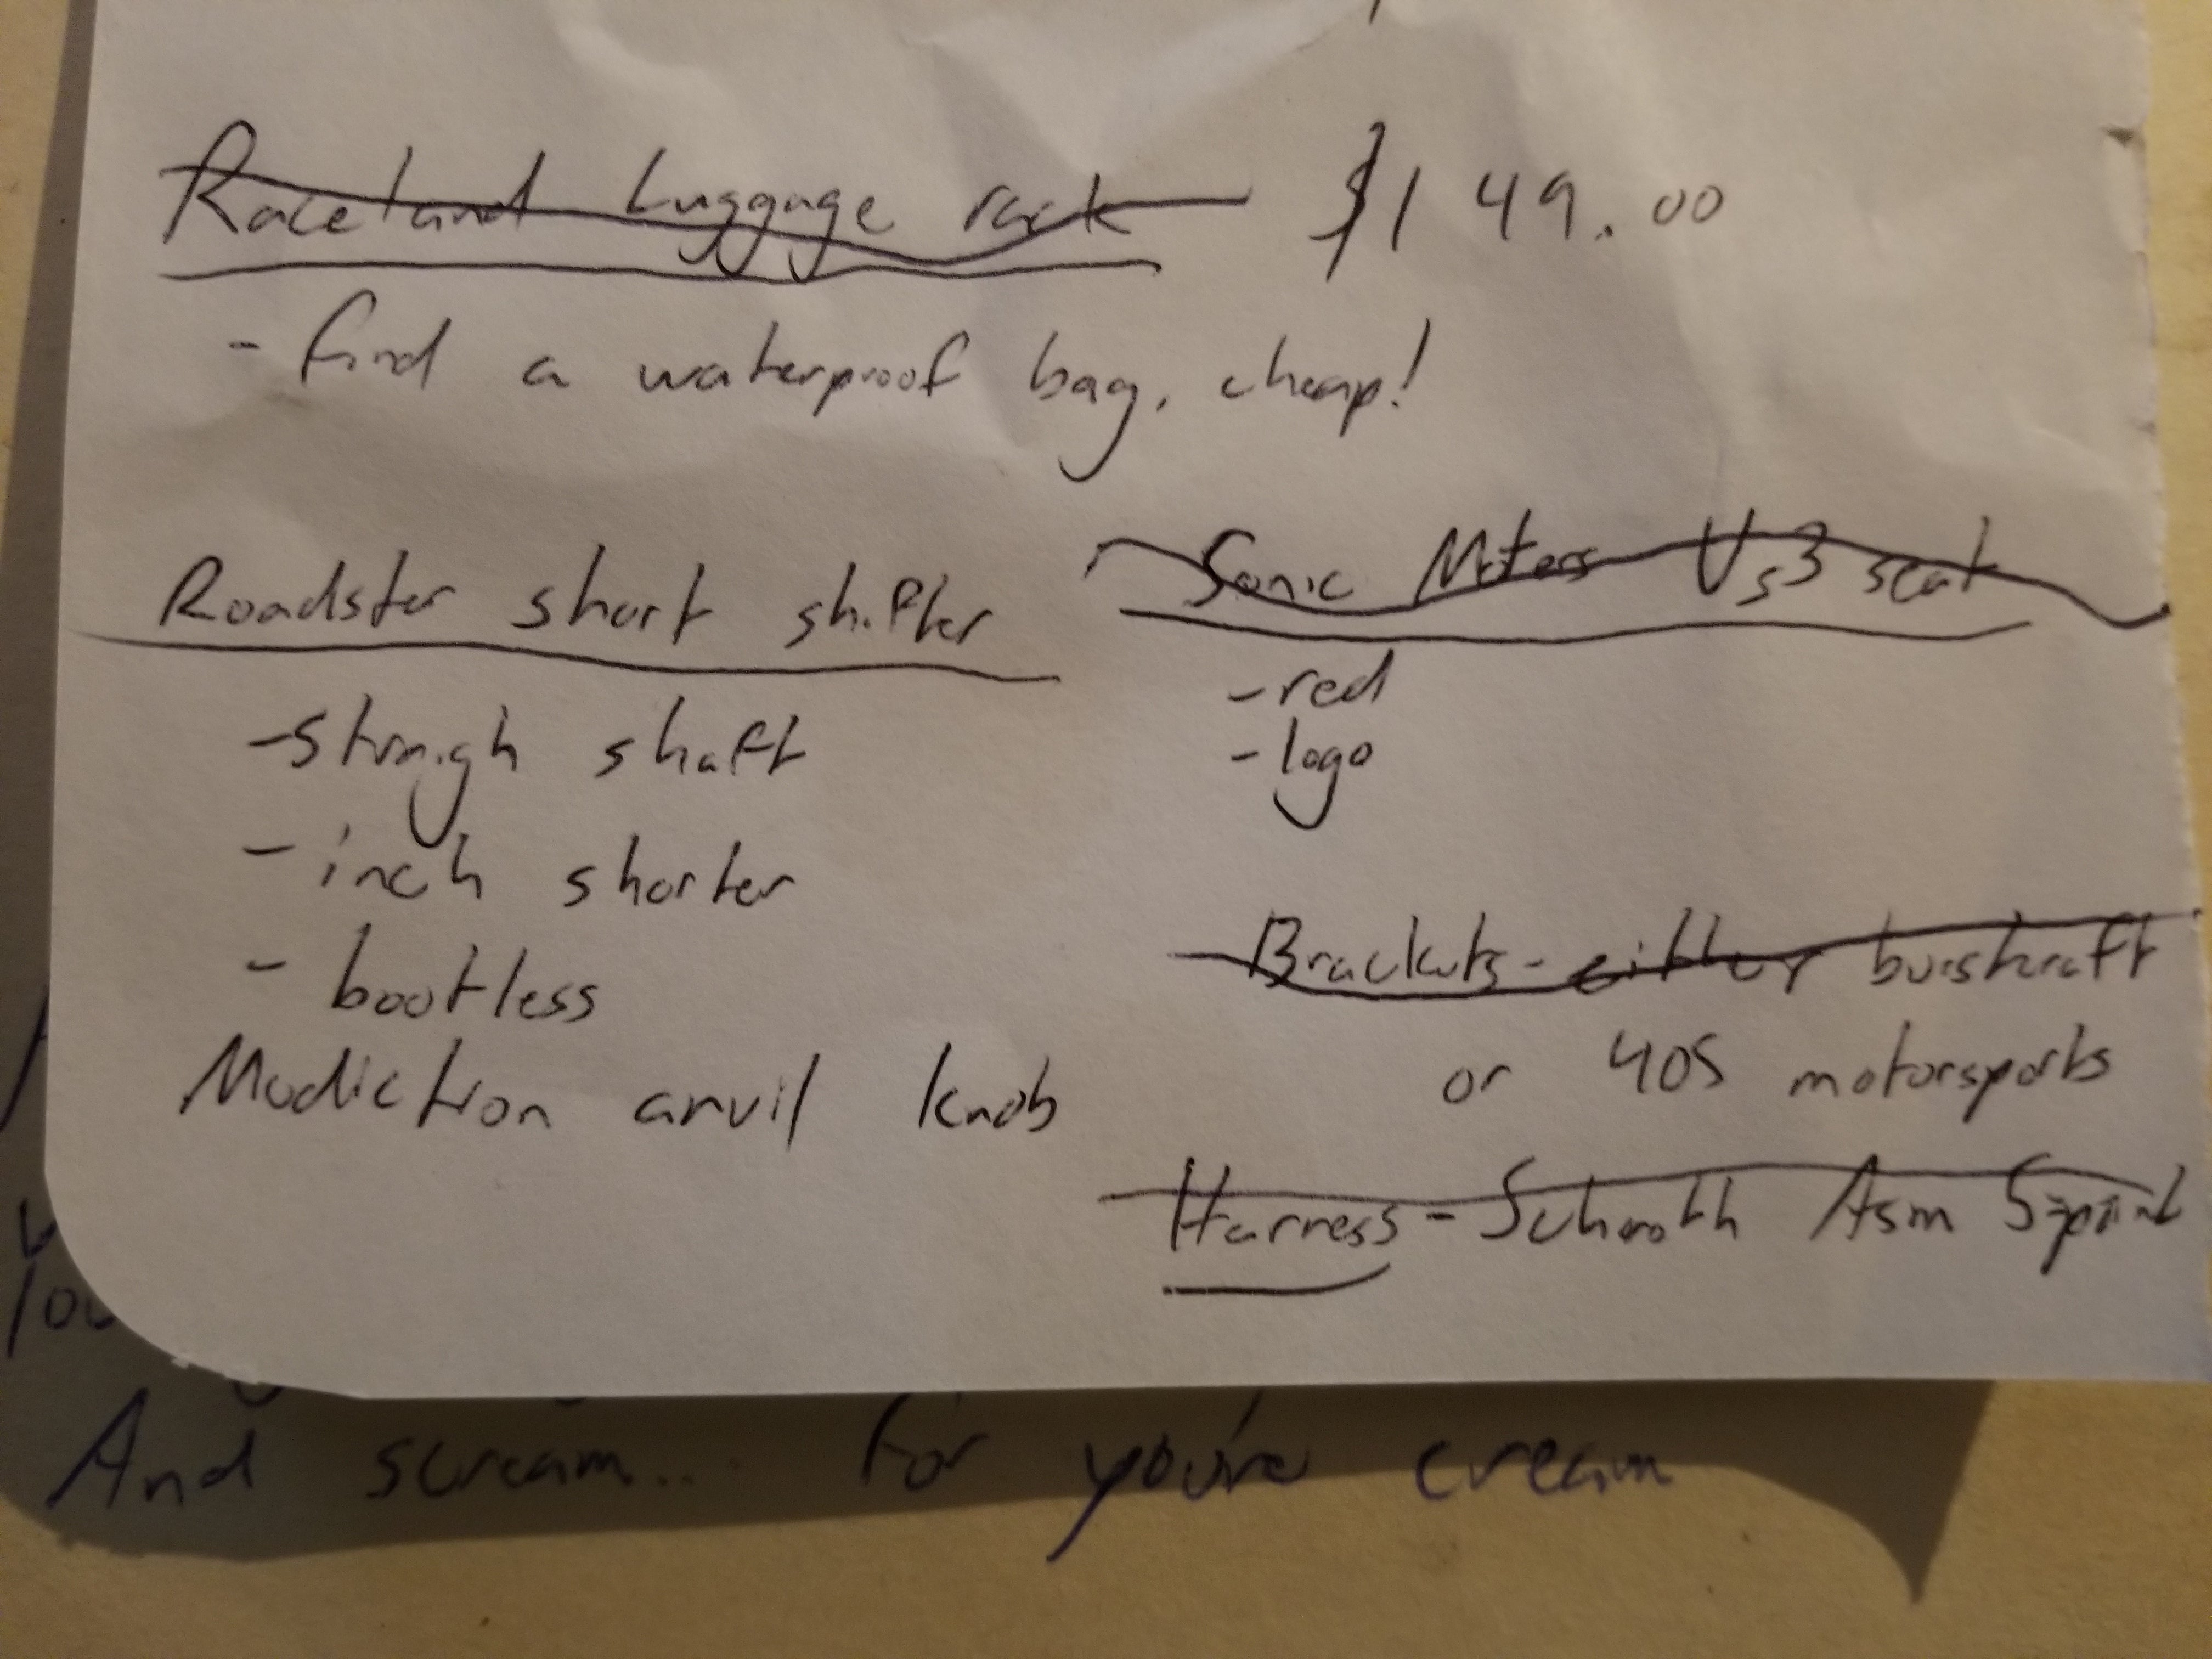 Raceland Luggage rack $149.00
- find a waterproof bag, cheap!
Roadster short shifter
- straigh shaft
- inch shorter
- bootless
Modiction anvil knob
Sonic Motors Vs3 seat
- red
- logo
Brackets - either
or 405 motorsports
Harness - Schroth Asm Sprint
And scream... for you're cream